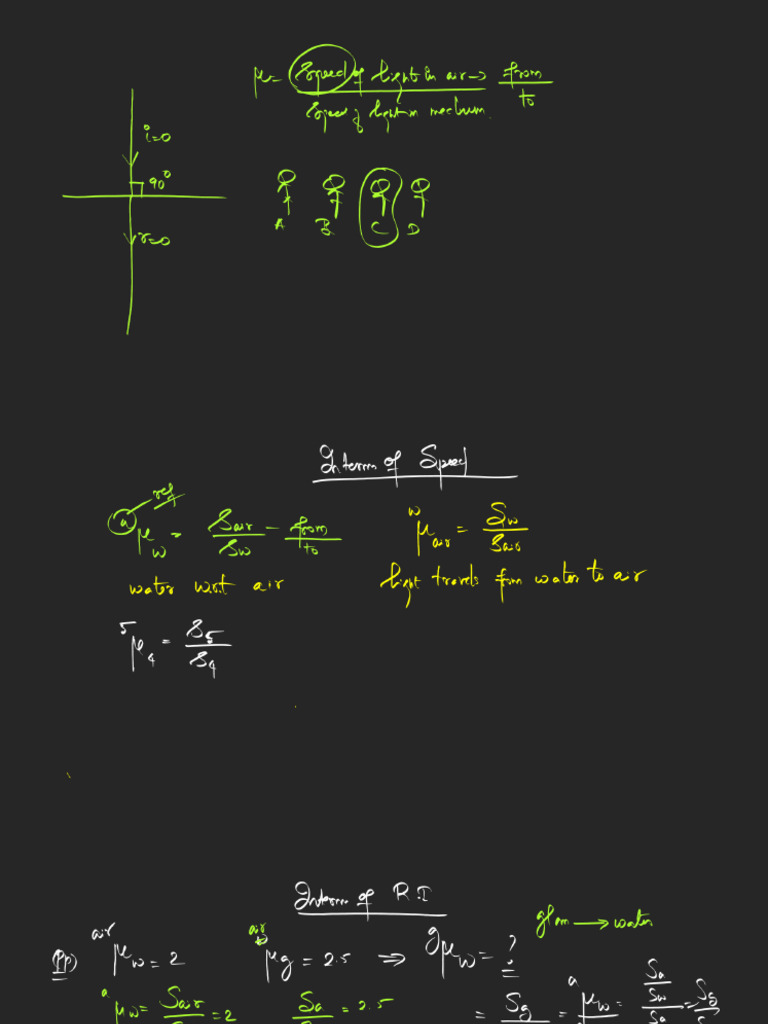 μ = Speed of light in air → from
Speed of light in medium. to
i=0
90°
r=0
A B C D
Interm of Speed
a μ w = Sair / Sw = from / to
ref
w μ air = Sw / Sair
water w.r.t air
light travels from water to air
5 μ 4 = S5 / S4
Interm of R.I
glass → water
PP) air μ w = 2
air μ g = 2.5 ⇒ g μ w = ?
a μ w = Sair = 2
Sa = 2.5
= Sg = a μ w = Sa / Sw = Sg
Sa